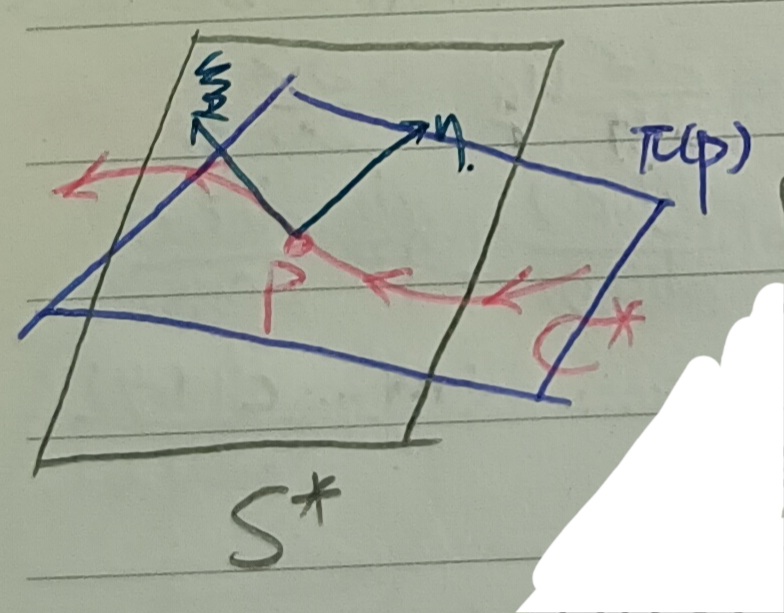 ξ
η
π(p)
P
C*
S*